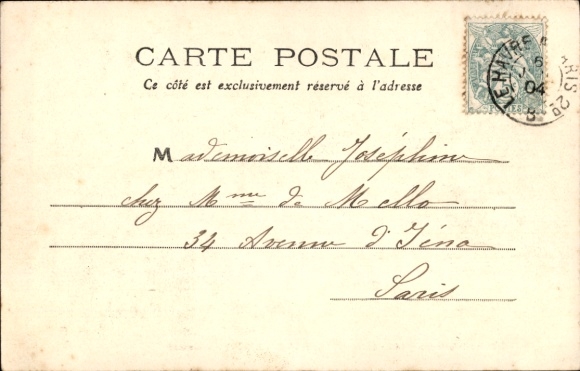 CARTE POSTALE
Ce côté est exclusivement réservé à l'adresse
LE HAVRE
6
04
PARIS 2D
8
Mademoiselle Joséphine
chez Mme de Mello
34 Avenue d'Iéna
Paris